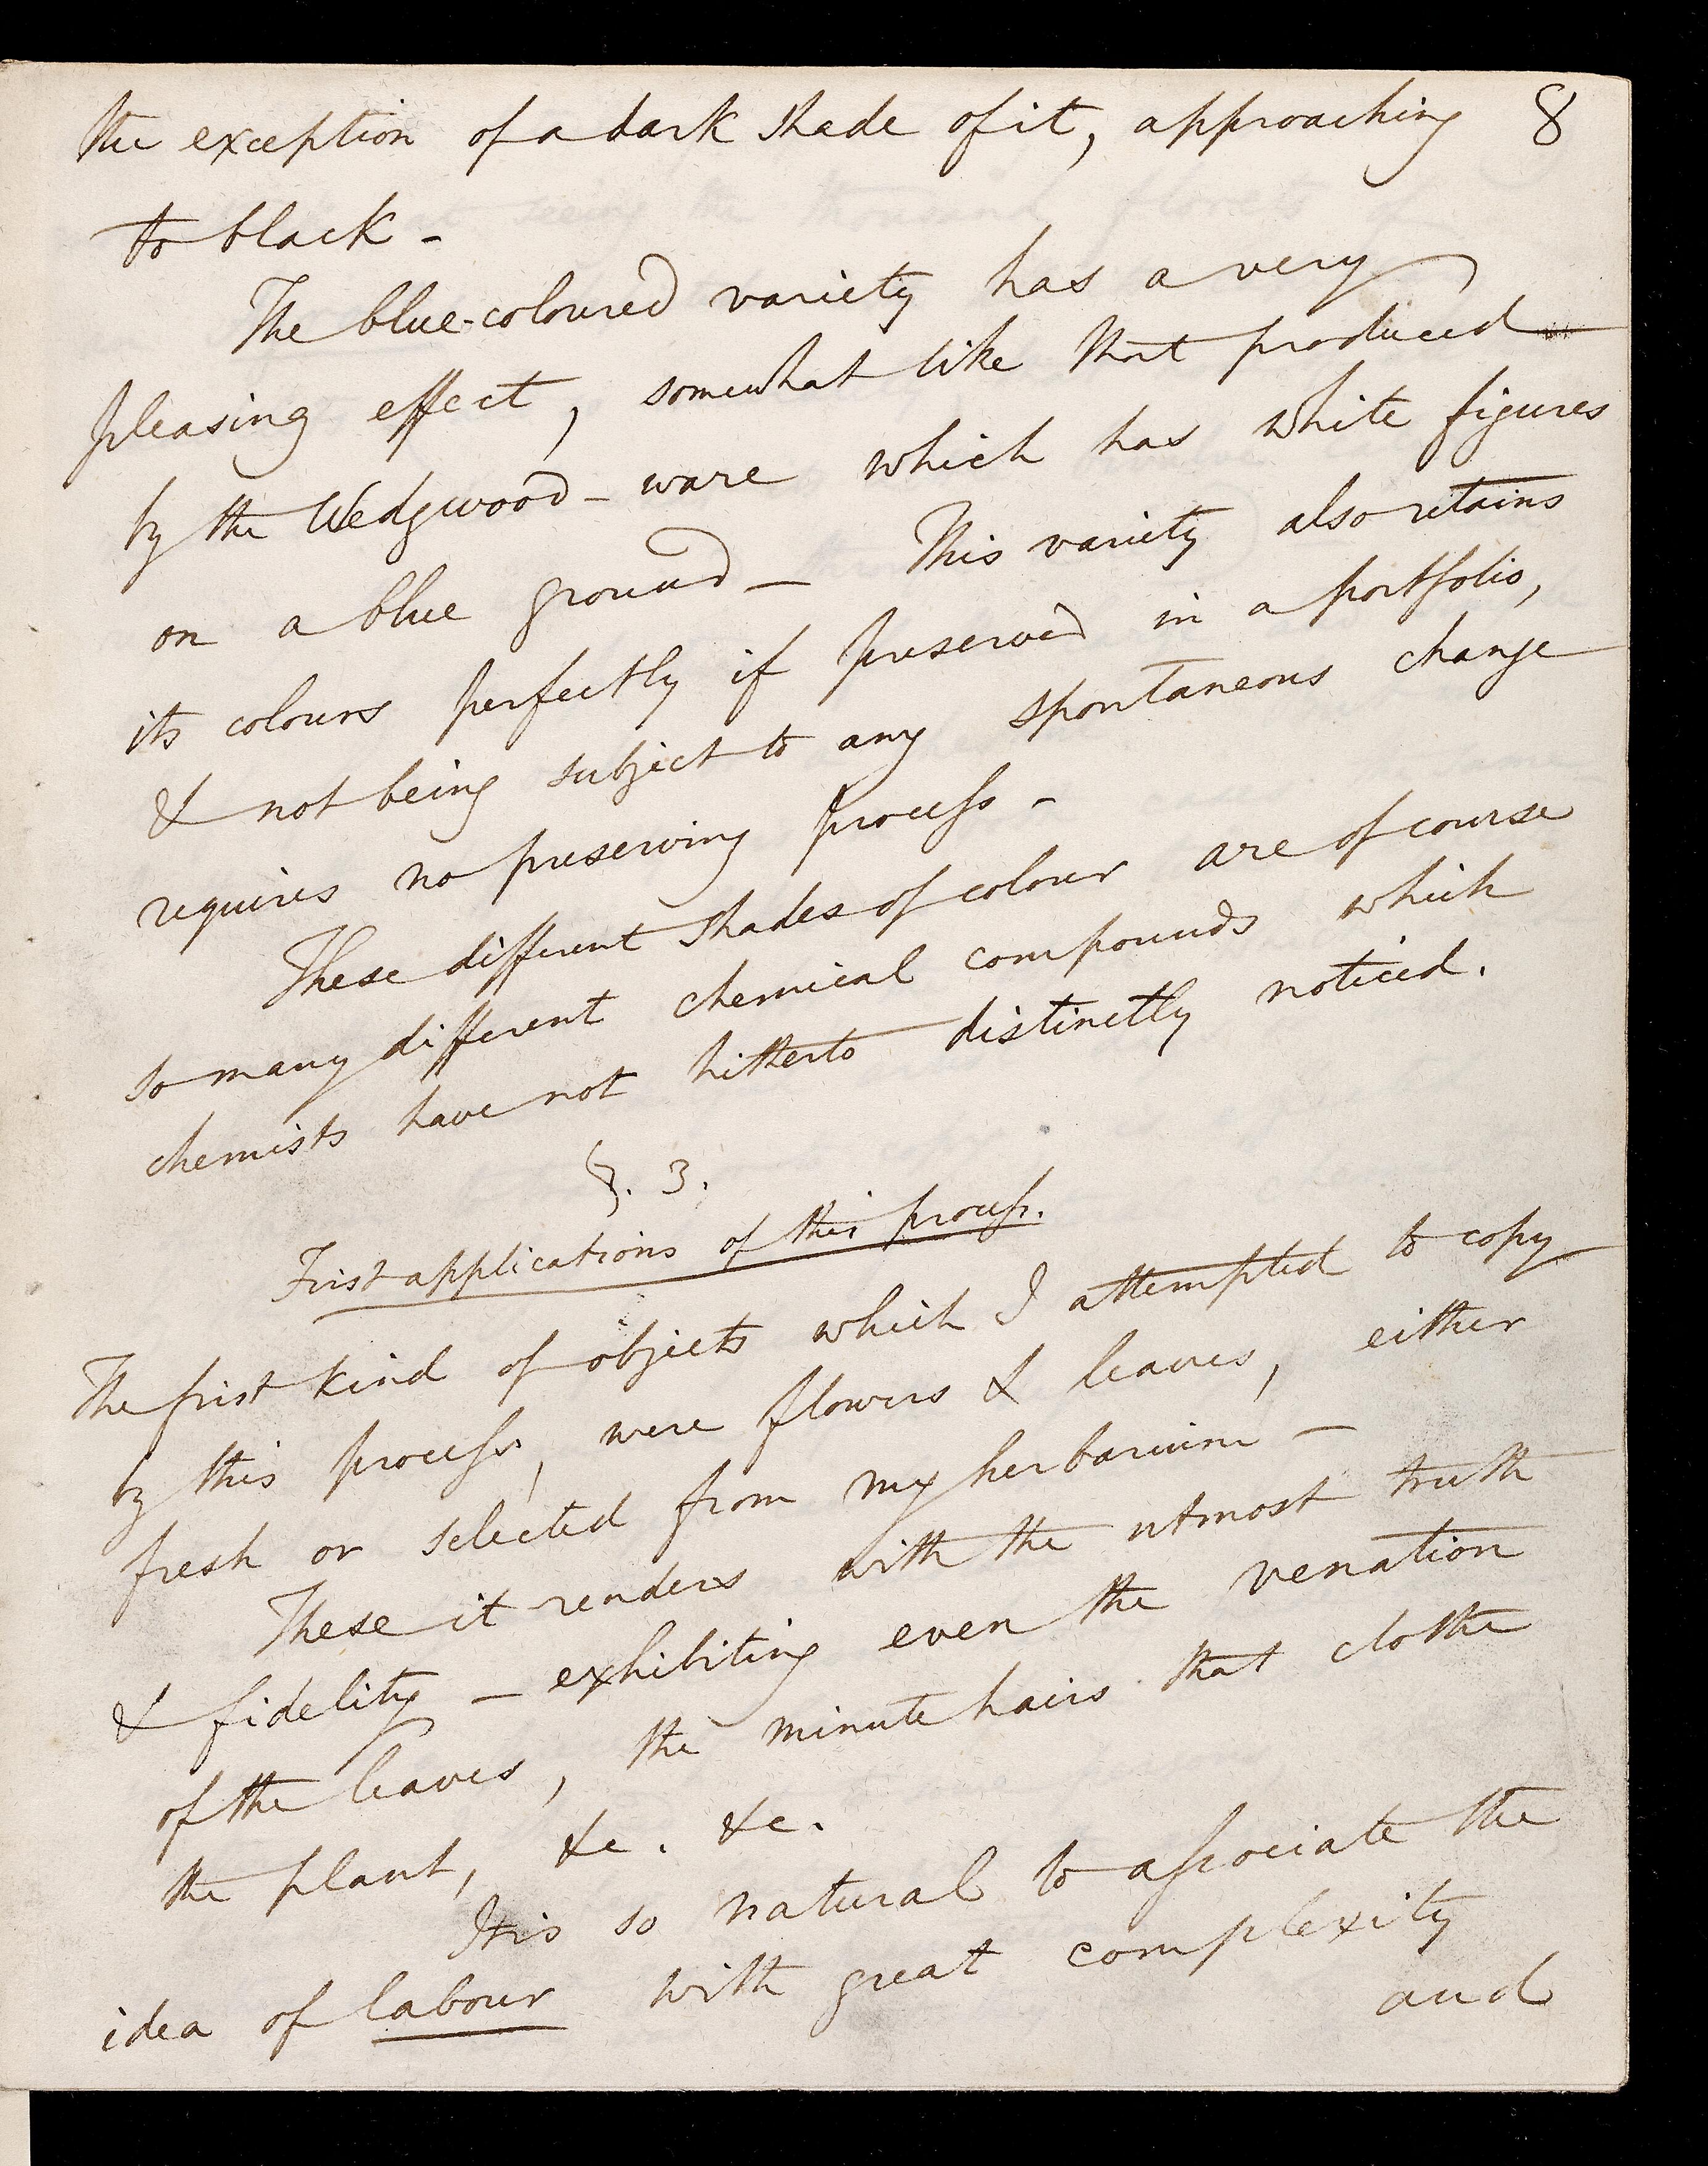 the exception of a dark shade of it, approaching 8
to black -
The blue-coloured variety has a very
pleasing effect, somewhat like that produced
by the Wedgwood-ware which has white figures
on a blue ground — This variety also retains
its colours perfectly if preserved in a portfolio,
& not being subject to any spontaneous change
requires no preserving process -
These different shades of colour are of course
so many different chemical compounds which
chemists have not hitherto distinctly noticed.
§. 3.
First applications of this process.
The first kind of objects which I attempted to copy
by this process, were flowers & leaves, either
fresh or selected from my herbarium —
These it renders with the utmost truth
& fidelity — exhibiting even the venation
of the leaves, the minute hairs that clothe
the plant, &c. &c.
It is so natural to associate the
idea of labour with great complexity
and